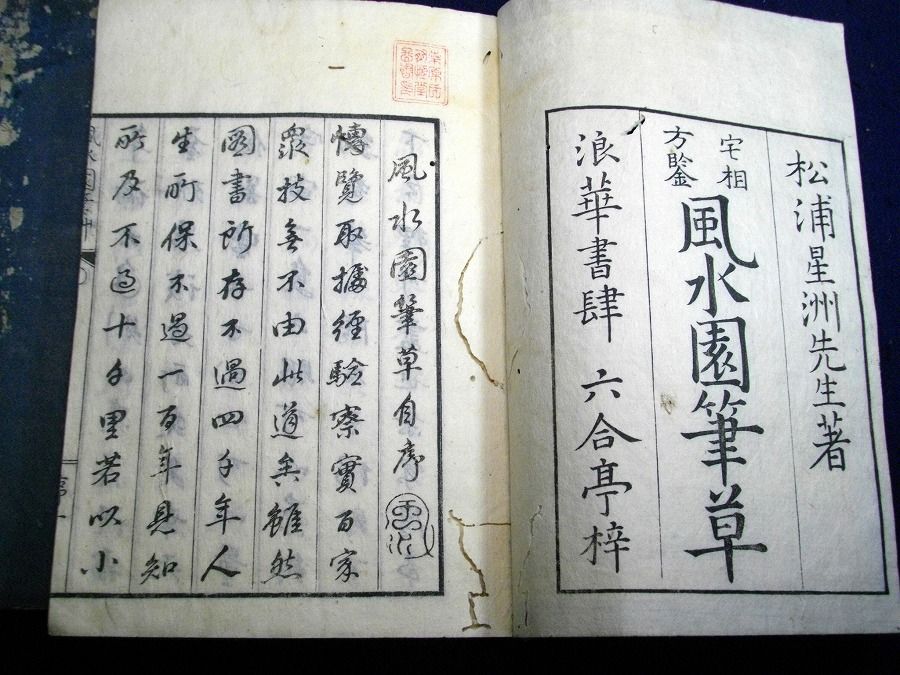 松浦星洲先生著
宅相
方鑒
風水園筆草
浪華書肆 六合亭梓
風水園筆草自序
博覽取據經驗察實百家
衆技無不由此道矣雖然
圖書所存不過四千年人
生所保不過一百年見知
所及不過十千里若以小